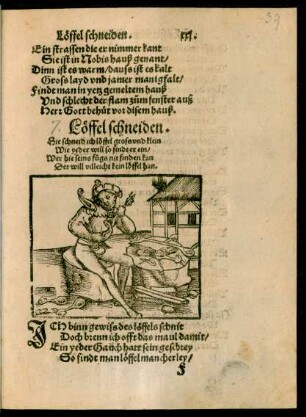 Löffel schneiden.
39
Ein strassen die er nümmer kant
Sie ist in Nobis hauß genant/
Dinn ist es warm/dauß ist es kalt
Gross layd vnd jamer manigfalt/
Findt man in yetz gemeltem hauß
Vnd schlecht der flam zum fenster auß
Herr Gott behüt vor disem hauß.
Löffel schneiden.
Sie schneid ich löffel gross vnd klein
Wie yeder will so findt er ein/
Wer hie seins fůgs nit finden kan
Der will villeicht kein löffel han.
ICH binn gewiss des löffels schnit
Doch brenn ich offt das maul damit/
Ein yeder Gauch hatt sein geschrey
So findt man löffel mancherley/